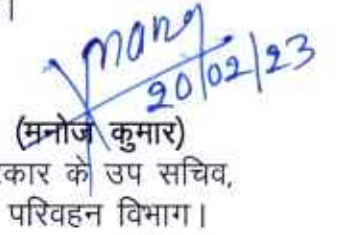 ।
manoj
20/02/23
(मनोज कुमार)
कार के उप सचिव,
परिवहन विभाग।